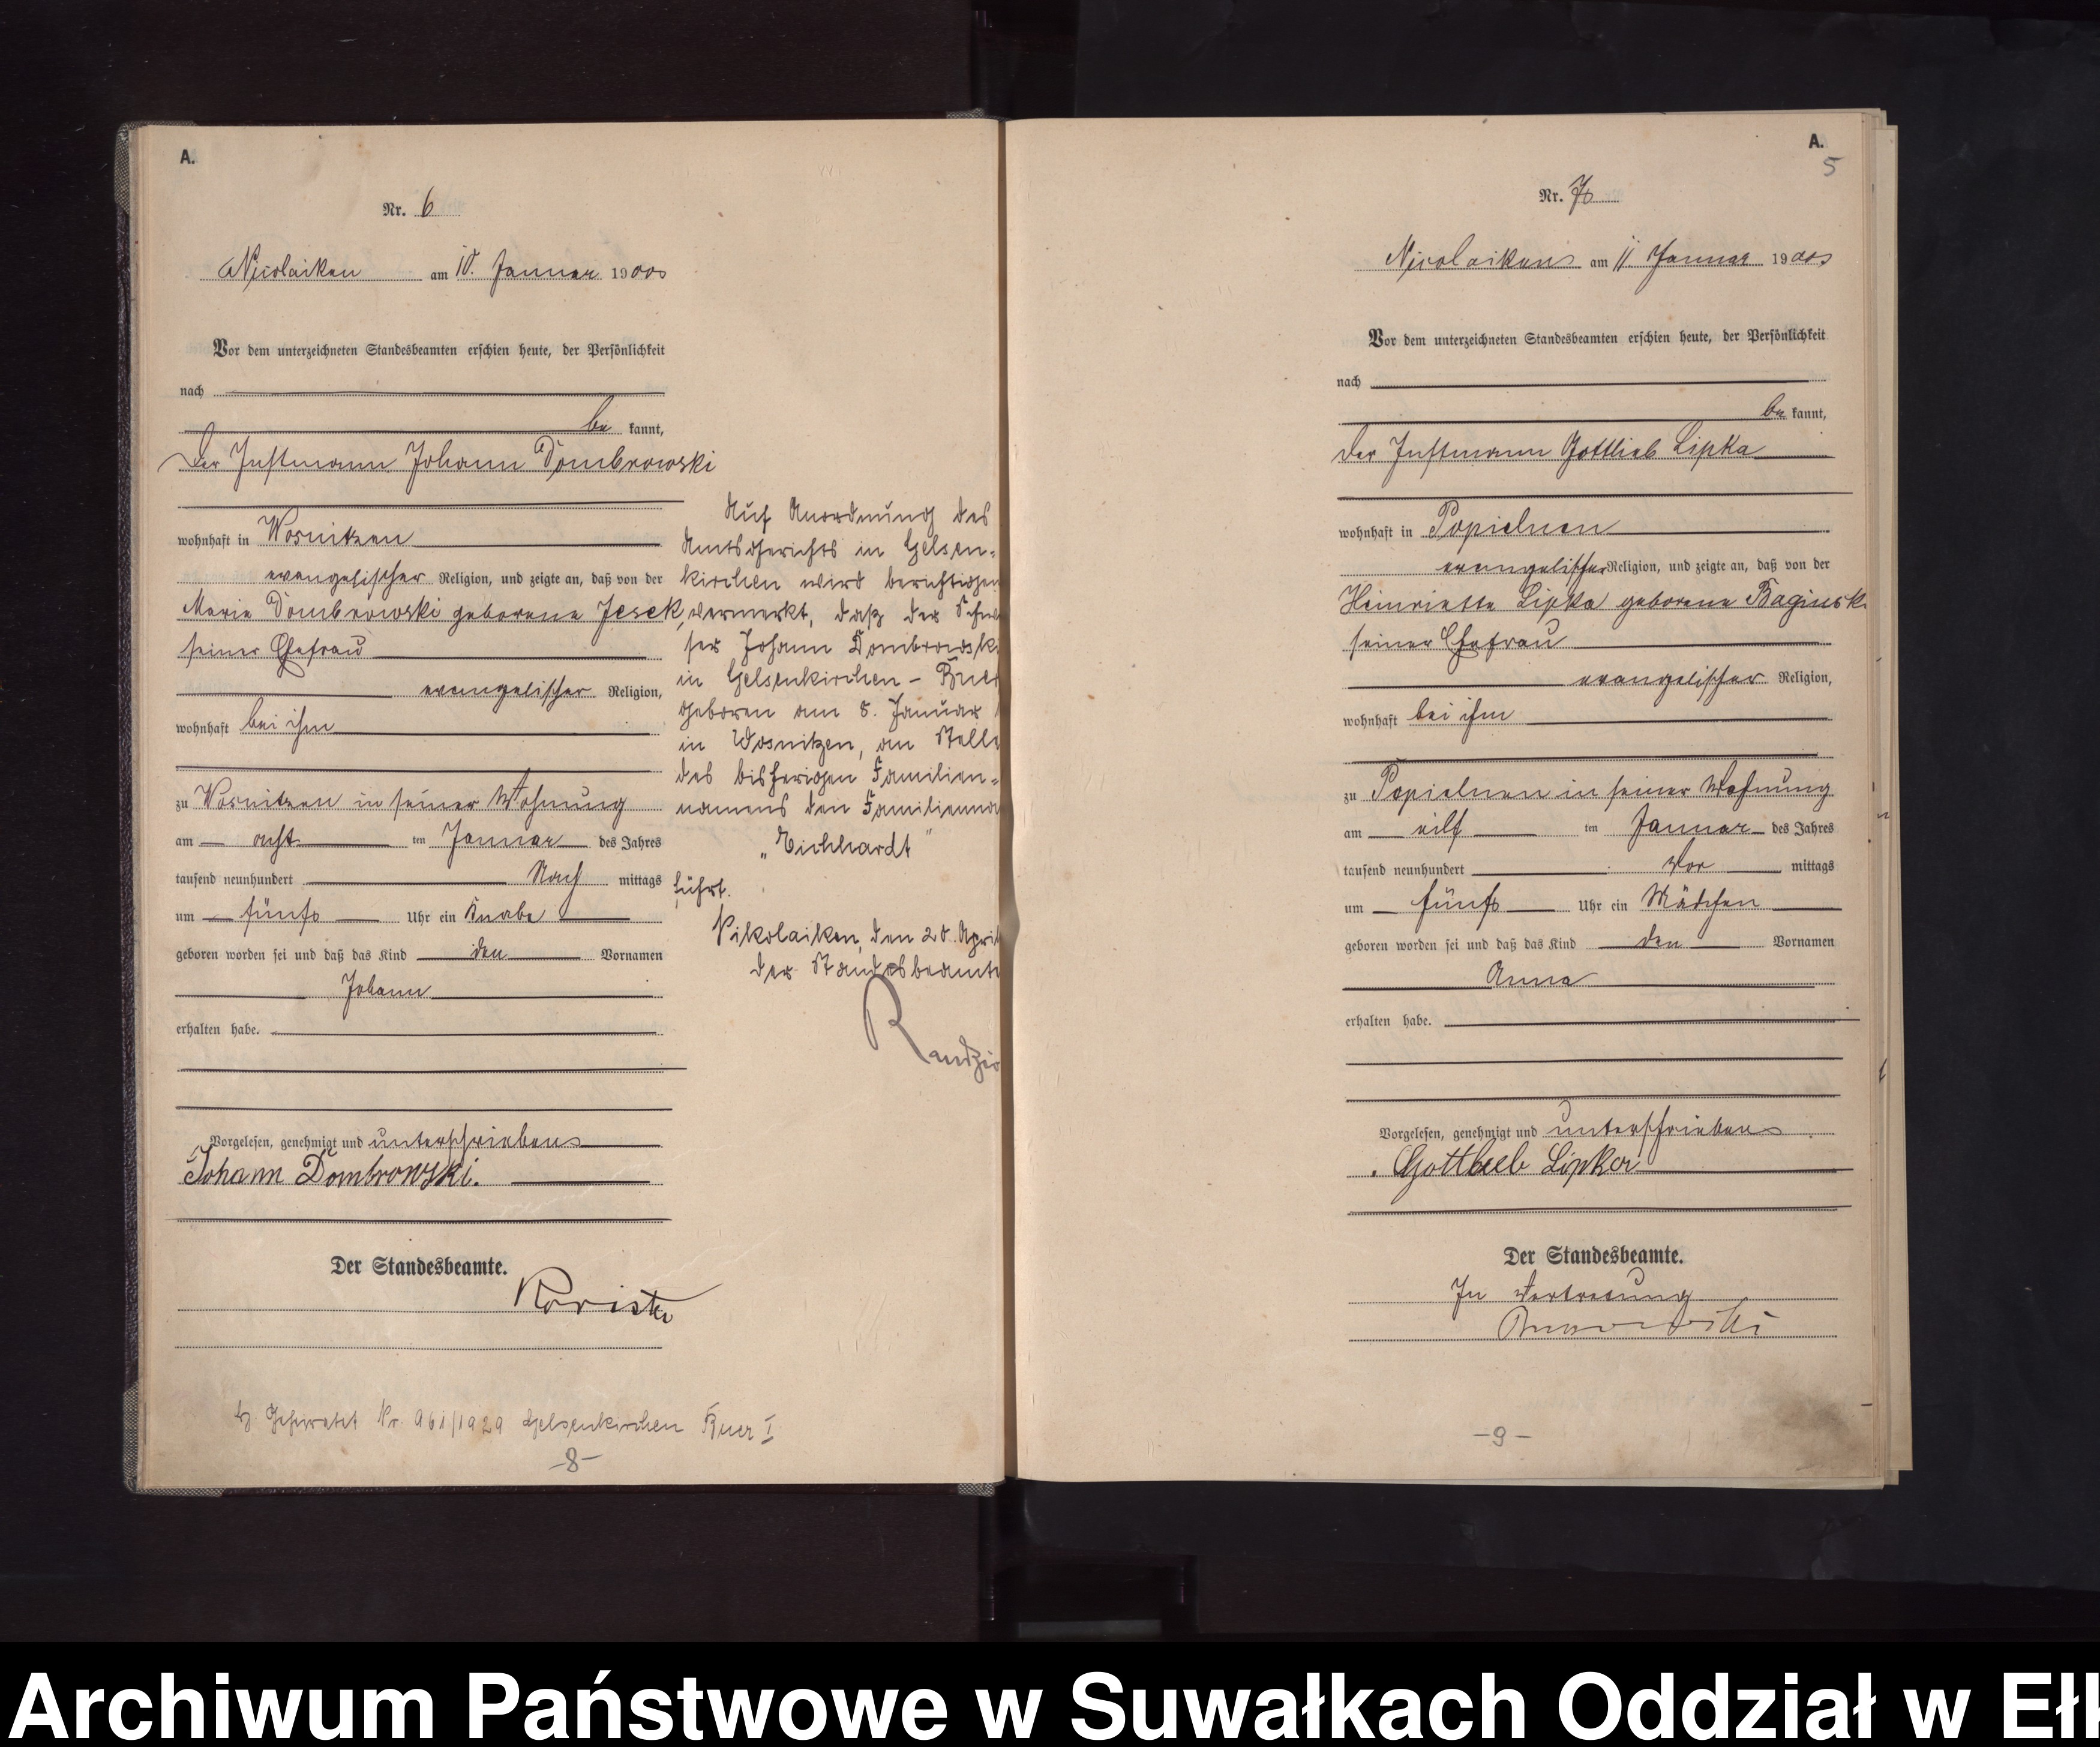 A.
Nr. 6
Nicolaiken am 10. Januar 1900
Vor dem unterzeichneten Standesbeamten erschien heute, der Persönlichkeit
nach
be kannt,
der Instmann Johann Dombrowski
wohnhaft in Wosnitzen
evangelischer Religion, und zeigte an, daß von der
Marie Dombrowski geborene Jesek,
seiner Ehefrau
evangelischer Religion,
wohnhaft bei ihm
zu Wosnitzen in seiner Wohnung
am acht ten Januar des Jahres
tausend neunhundert Nach mittags
um fünf Uhr ein Knabe
geboren worden sei und daß das Kind den Vornamen
Johann
erhalten habe.
Vorgelesen, genehmigt und unterschrieben
Johann Dombrowski.
Der Standesbeamte.
Auf Anordnung des
Amtsgerichts in Gelsen-
kirchen wird berichtigen
vermerkt, daß der
Johann Dombrowski
in Gelsenkirchen - Buer
geboren am 8. Januar
in Wosnitzen, an Stelle
des bisherigen Familien-
namens den Familienna
„Eichhardt"
führt.
Nikolaiken, den 20. April
der Standesbeamte
Geheiratet Nr. 961/1929 Gelsenkirchen Buer I
-8-
A.
5
Nr. 7
Nicolaiken am 11. Januar 1900
Vor dem unterzeichneten Standesbeamten erschien heute, der Persönlichkeit
nach
be kannt,
der Instmann Gottlieb Lipka
wohnhaft in Popielnen
evangelischer Religion, und zeigte an, daß von der
Heinriette Lipka geborene Baginski
seiner Ehefrau
evangelischer Religion,
wohnhaft bei ihm
zu Popielnen in seiner Wohnung
am eilf ten Januar des Jahres
tausend neunhundert Vor mittags
um fünf Uhr ein Mädchen
geboren worden sei und daß das Kind den Vornamen
Anna
erhalten habe.
Vorgelesen, genehmigt und unterschrieben
Gottlieb Lipka
Der Standesbeamte.
In Vertretung
-9-
Archiwum Państwowe w Suwałkach Oddział w Ełk